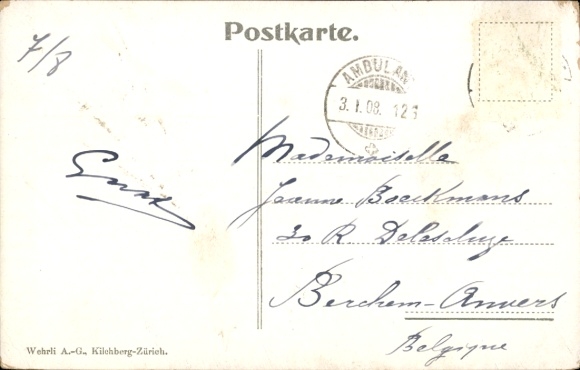 Postkarte.
7/8
AMBULAN
3.I.08. 12
Mademoiselle
Jeanne Boeckmans
30 R. Delescluze
Berchem-Anvers
Belgique
Wehrli A.-G., Kilchberg-Zürich.